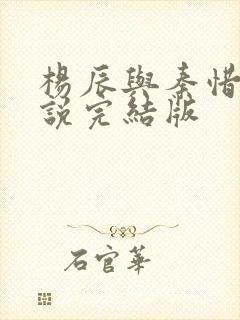 楊辰與秦惜
說完結版
石官華